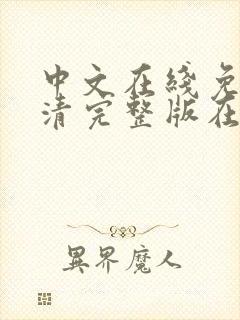 中文在线免
清完整版在
異界魔人